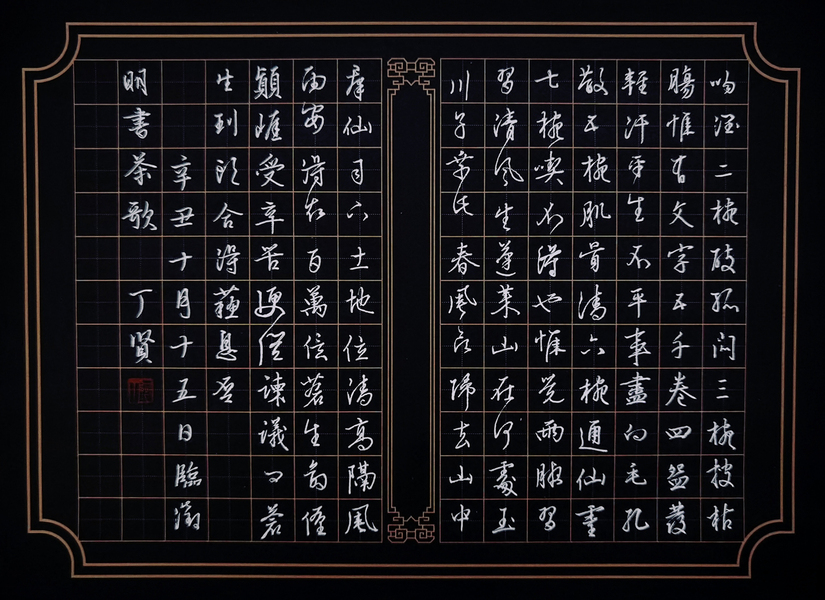 吻潤二椀破孤悶三椀搜枯
腸惟有文字五千卷四盌發
輕汗平生不平事盡向毛孔
散五椀肌骨清六椀通仙靈
七椀喫不得也惟覺兩腋習
習清風生蓬萊山在何處玉
川子乘此春風欲歸去山中
群仙司下土地位清高隔風
雨安得知百萬億蒼生命墮
顛崖受辛苦便從諫議問蒼
生到頭合得蘇息否
辛丑十月十五日臨徵
明書茶歌 丁賢